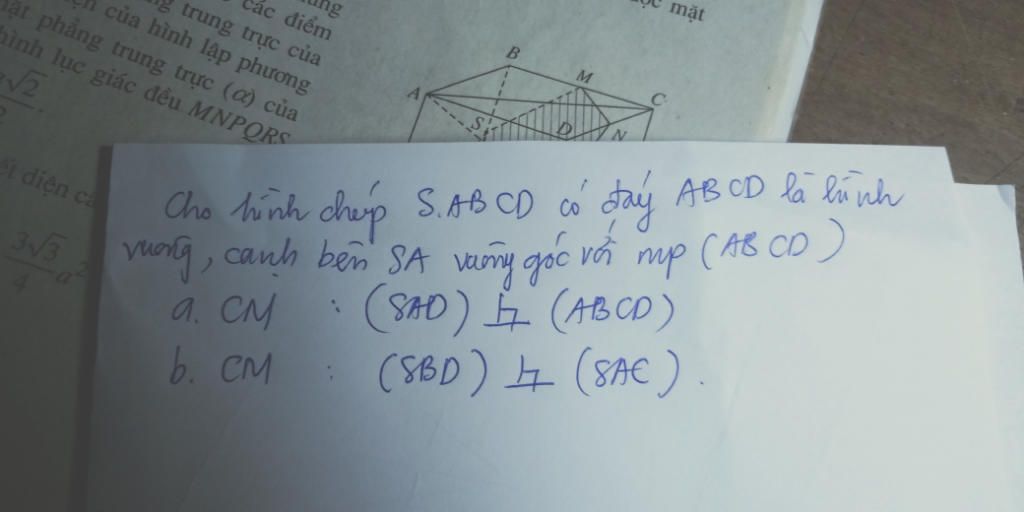 các điểm
ng trung trực của
ọc mặt
ện của hình lập phương
mặt phẳng trung trực (α) của
hình lục giác đều MNPQRS
√2
2
ết diện
3√3
4 a²
A
B
M
C
S
D
N
Cho hình chóp S.ABCD có đáy ABCD là hình
vuông, cạnh bên SA vuông góc với mp (ABCD)
a. CM : (SAD) ⊥ (ABCD)
b. CM : (SBD) ⊥ (SAC).